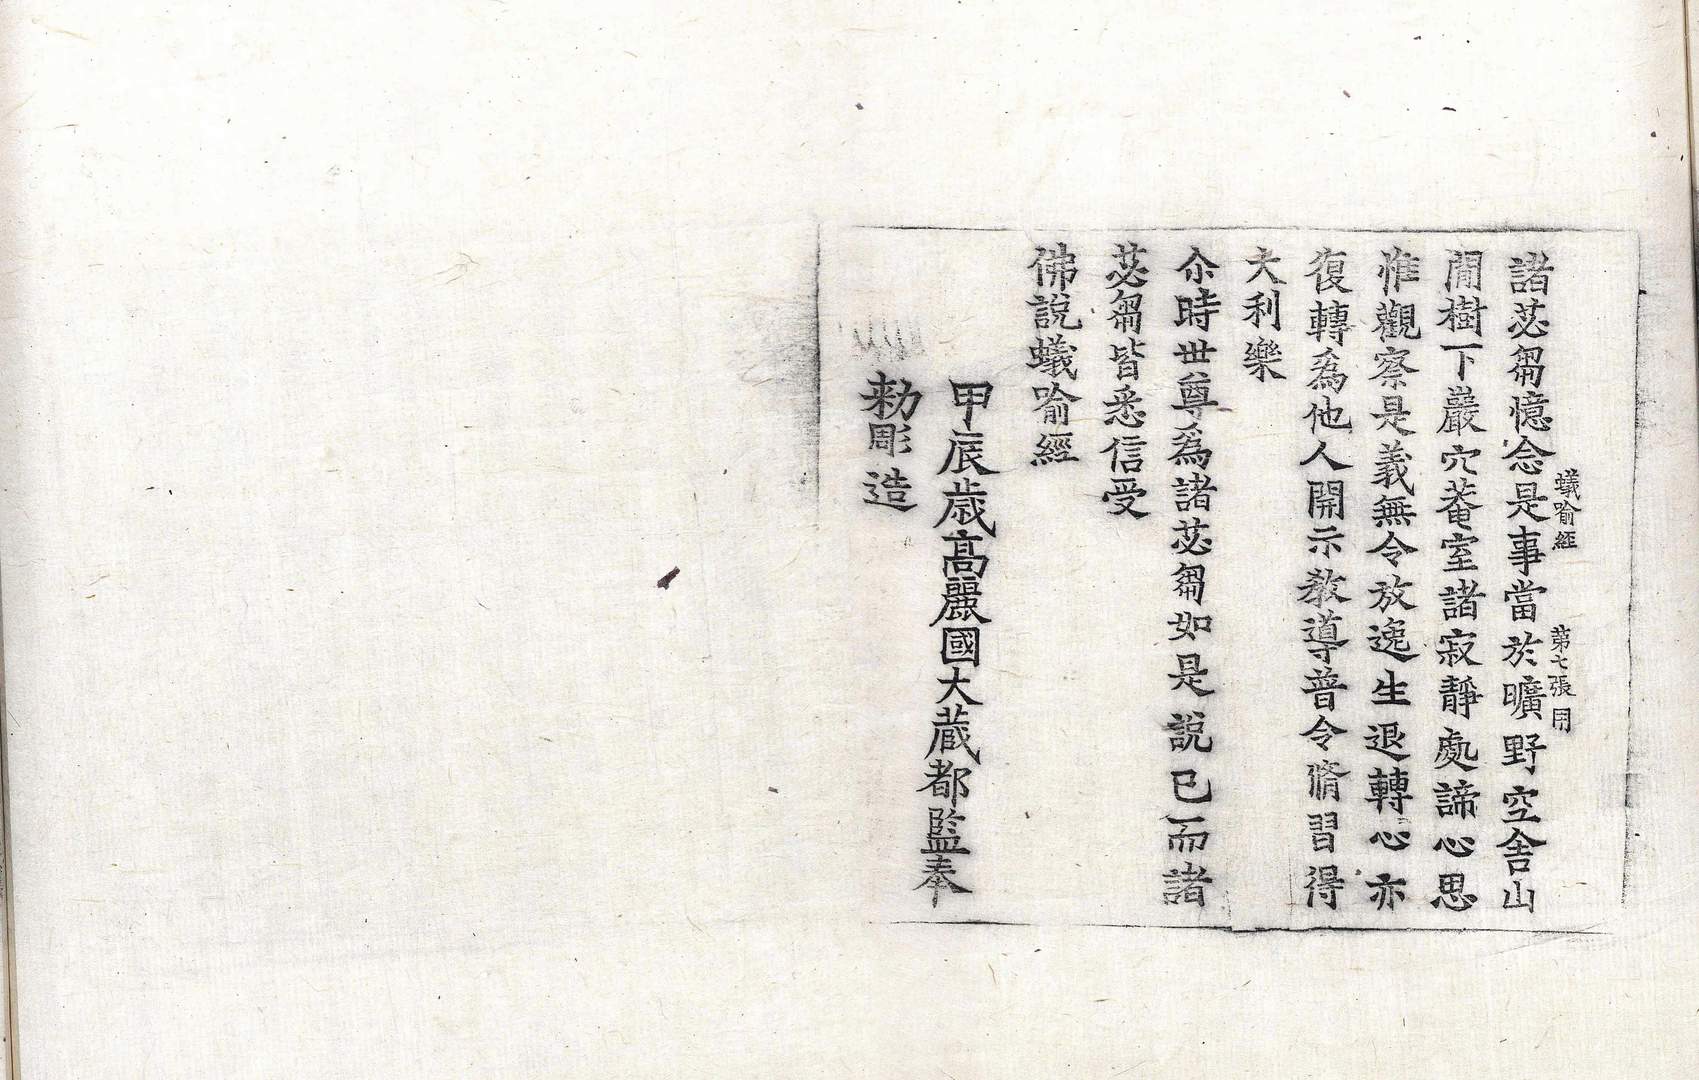 諸苾芻憶念是事當於曠野空舍山
蟻喻經 第七張 用
間樹下巖穴菴室諸寂靜處諦心思
惟觀察是義無令放逸生退轉心亦
復轉爲他人開示教導普令脩習得
大利樂
尒時世尊爲諸苾芻如是說已而諸
苾芻皆悉信受
佛說蟻喻經
甲辰歲高麗國大藏都監奉
勅彫造